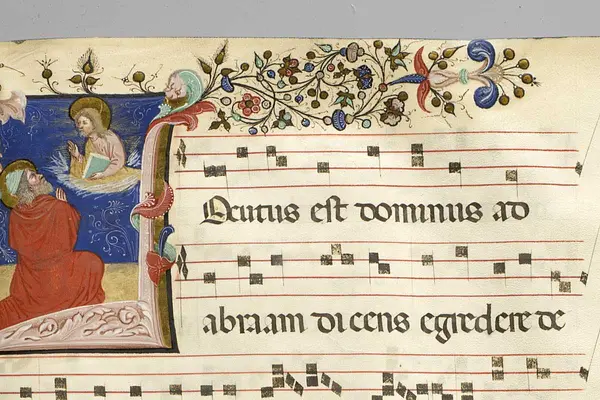 Ocutus est dominus ad
abraam dicens egredere de